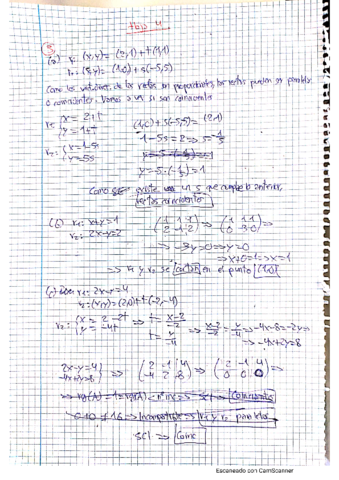 Hoja 4
5
(a) r₁: (x,y) = (2,1) + t(1,1)
r₂: (x,y) = (1,0) + s(-5,5)
Como los vectores de las rectas son proporcionales las rectas pueden ser paralelas
o coincidentes. Vamos a ver si son coincidentes
r₁ = { x = 2+t
y = 1+t
(1,0) + s(-5,5) = (2,1)
1-5s = 2 ⇒ s = -1/5
r₂ = { x = 1-5s
y = 5s
y = 5·(-1/5) = 1
Como existe un s que cumple lo anterior,
rectas coincidentes
(b) r₁: x+y=1
r₂: 2x-y=2
(1 1 1
2 -1 2) ⇒ (1 1 1
0 3 0) ⇒
⇒ -3y=0 ⇒ y=0
⇒ x+0=1 ⇒ x=1
⇒ r₁ y r₂ se cortan en el punto (1,0)
(c) r₁: 2x-y=4
r₂: (x,y) = (2,0) + t(-2,-4)
r₂: { x = 2-2t
y = -4t ⇒ t = x-2/-2
t = y/-4 ⇒ x-2/-2 = y/-4 ⇒ -4x+8=-2y ⇒
⇒ -4x+2y=8
2x-y=4
-4x+2y=8 } ⇒ (2 -1 4
-4 2 8) ⇒ (2 -1 4
0 0 0) ⇒
⇒ rg(A) = 1 = rg(A) < nº inc ⇒ SCI ⇒ Coincidentes
⇒ 0 = 16 ⇒ Incompatible ⇒ r₁ y r₂ paralelas
SCI ⇒ Coinc
Escaneado con CamScanner